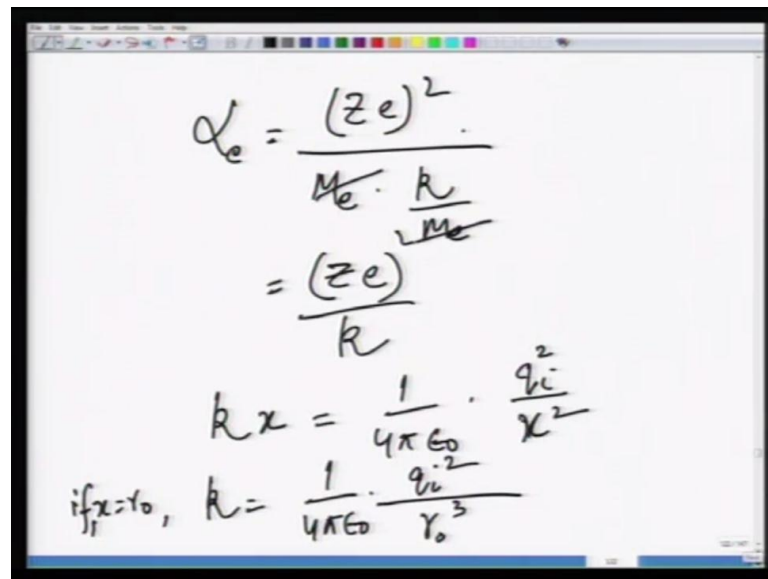 File Edit View Insert Actions Tools Help
αe = (Ze)² / Me · k/Me
= (Ze) / k
kx = 1/4πε0 · qi²/x²
if, x=r0, k = 1/4πε0 · qi²/r0³